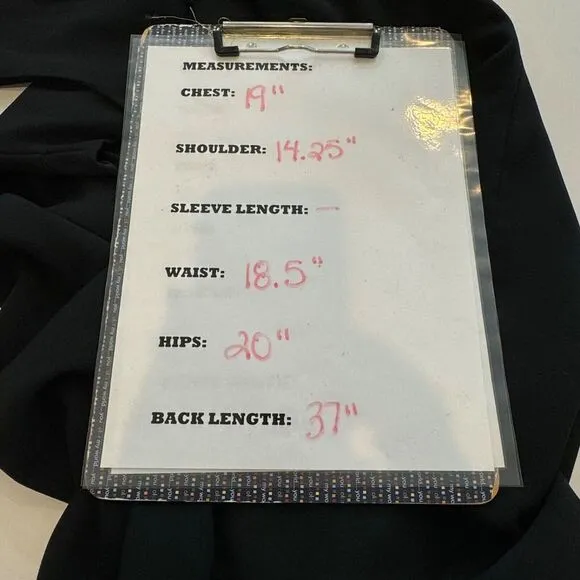 MEASUREMENTS:
CHEST: 19"
SHOULDER: 14.25"
SLEEVE LENGTH: —
WAIST: 18.5"
HIPS: 20"
BACK LENGTH: 37"